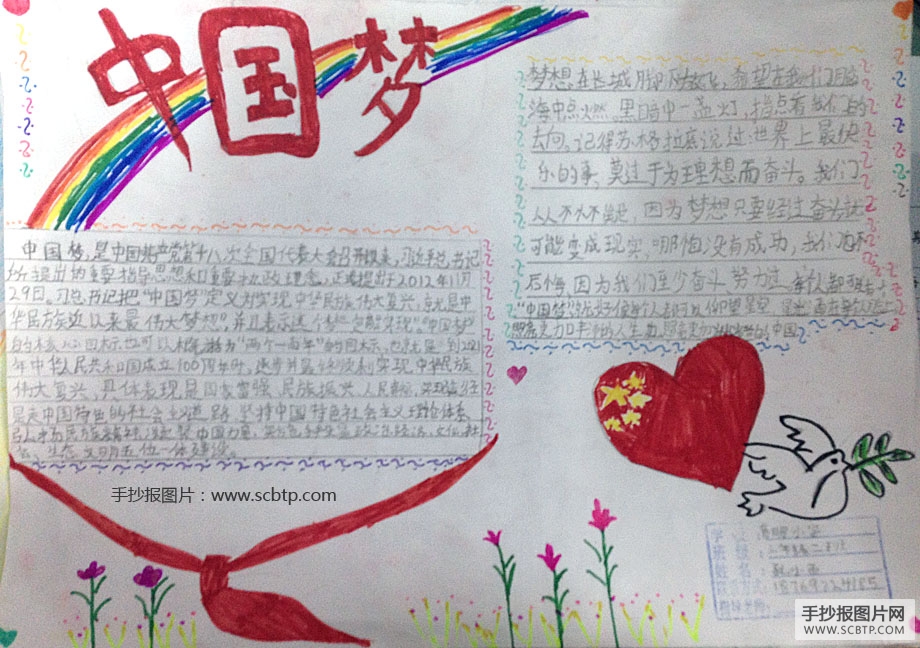 中国梦
中国梦,是中国共产党第十八次全国代表大会召开以来,习近平总书记
所提出的重要指导思想和重要执政理念,正式提出于2012年11月
29日。习总书记把“中国梦”定义为“实现中华民族伟大复兴,就是中
华民族近代以来最伟大梦想”,并且表示这个梦“一定能实现”。“中国梦”
的核心目标也可以概括为“两个一百年”的目标,也就是:到2021
年中华人民共和国成立100周年时,逐步并最终顺利实现中华民族
伟大复兴,具体表现是国家富强、民族振兴、人民幸福,实现途径
是走中国特色的社会主义道路、坚持中国特色社会主义理论体系、
弘扬民族精神、凝聚中国力量,
会、生态文明五位一体建设。
梦想在长城脚下放飞,希望在我们
海中点燃。黑暗中一盏灯,指点着我们的
去向。记得苏格拉底说过:世界上最快
乐的事,莫过于为理想而奋斗。我们
人人不怀疑,因为梦想只要经过奋斗就
可能变成现实,哪怕没有成功,我们也不
后悔,因为我们至少奋斗、努力过。
“中国梦”
的中国
手抄报图片:www.scbtp.com
学校:
班级:
姓名:
联系方式:
手抄报图片网
WWW.SCBTP.COM